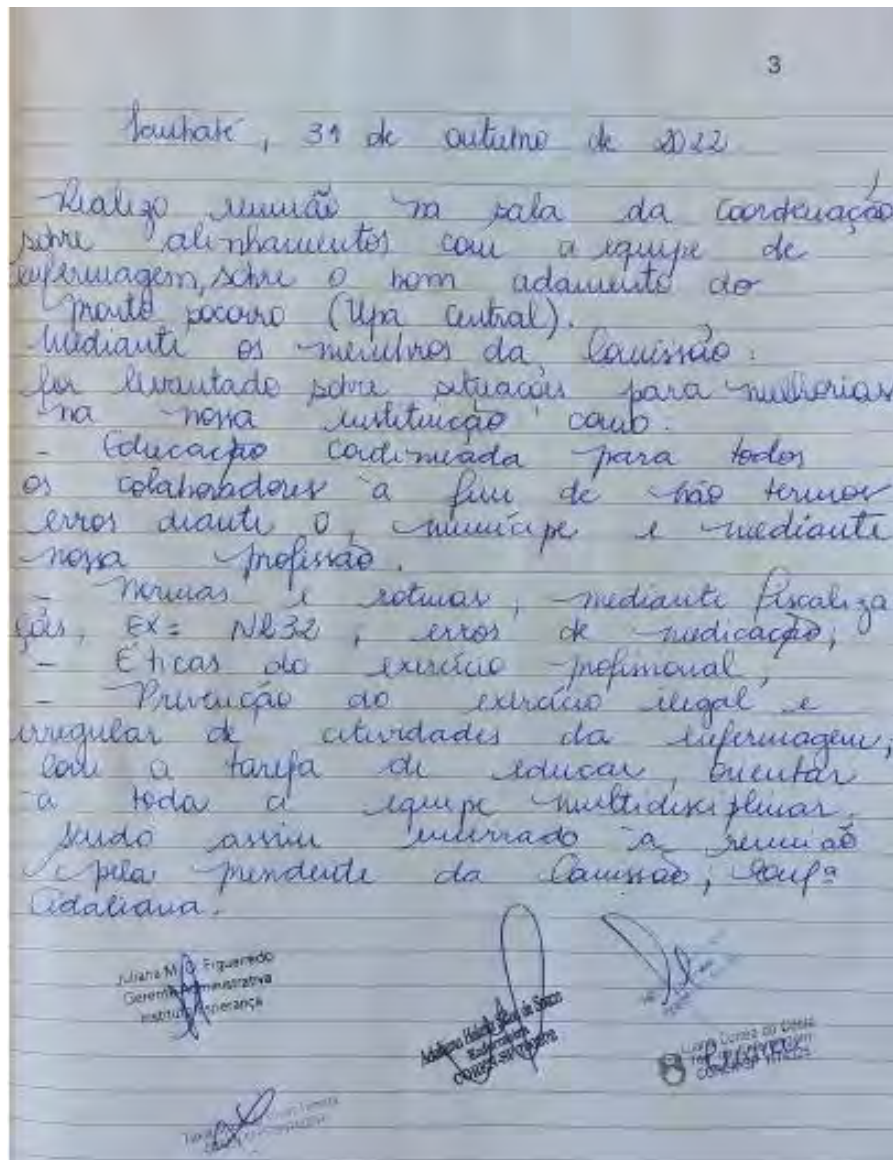 3
Taubaté, 31 de outubro de 2022
Realizo reunião na sala da Coordenação,
sobre alinhamentos com a equipe de
enfermagem, sobre o bom adamento do
pronto socorro (Upa Central).
Mediante os membros da Comissão:
foi levantado sobre situações para melhorias
na nossa instituição como:
- Educação para todos
os colaboradores a fim de não termos
erros diante o munícipe e mediante
nossa profissão.
- Normas e rotinas, mediante fiscaliza
ções, EX= NR32, erros de medicação;
- Éticas do exercício profissional;
- Prevenção do exercício ilegal e
irregular de atividades da enfermagem;
com a tarefa de educar, orientar
a toda a equipe multidisciplinar.
sendo assim encerrado a reunião
pela presidente da Comissão, Enfª
Adaliana.
Juliana M. O. Figueiredo
Gerente Administrativa
Instituto Esperança
de Souza
Enfermeira